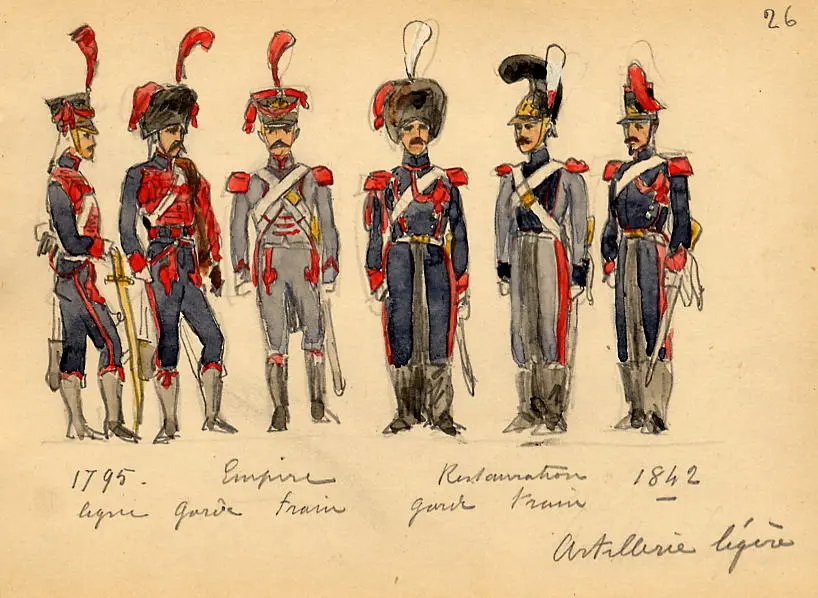 26
1795. Empire Restauration 1842
ligne Garde Train garde train
Artillerie légère